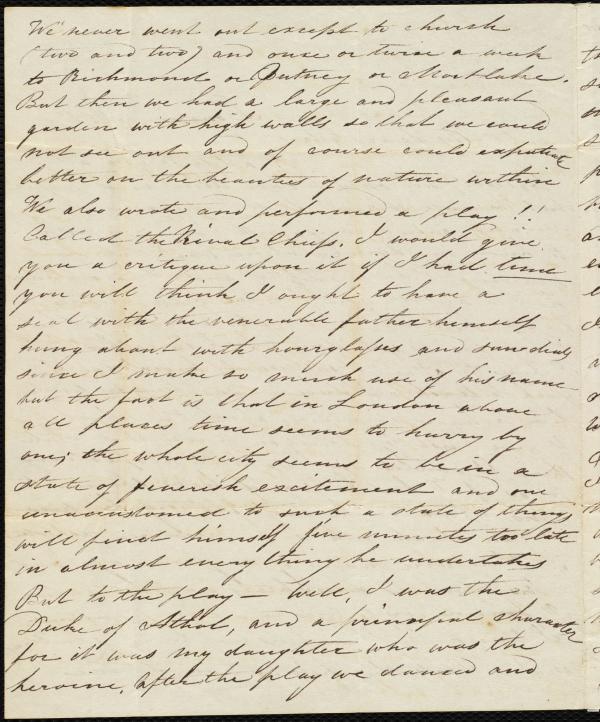 We never went out except to church
(two and two) and once or twice a week
to Richmond or Putney or Mortlake.
But then we had a large and pleasant
garden with high walls so that we could
not see out and of course could expatiate
better on the beauties of nature within
We also wrote and performed a play!!
Called the Rival Chiefs. I would give
you a critique upon it if I had time
you will think I ought to have a
seal with the venerable father himself
hung about with hourglasses and sun-dials
since I make so much use of his name
but the fact is that in London above
all places time seems to hurry by
one; the whole city seems to be in a
state of feverish excitement and one
unaccustomed to such a state of things
will find himself five minutes too late
in almost every thing he undertakes
But to the play — Well, I was the
Duke of Athol, and a principal character
for it was my daughter who was the
heroine. After the play we danced and